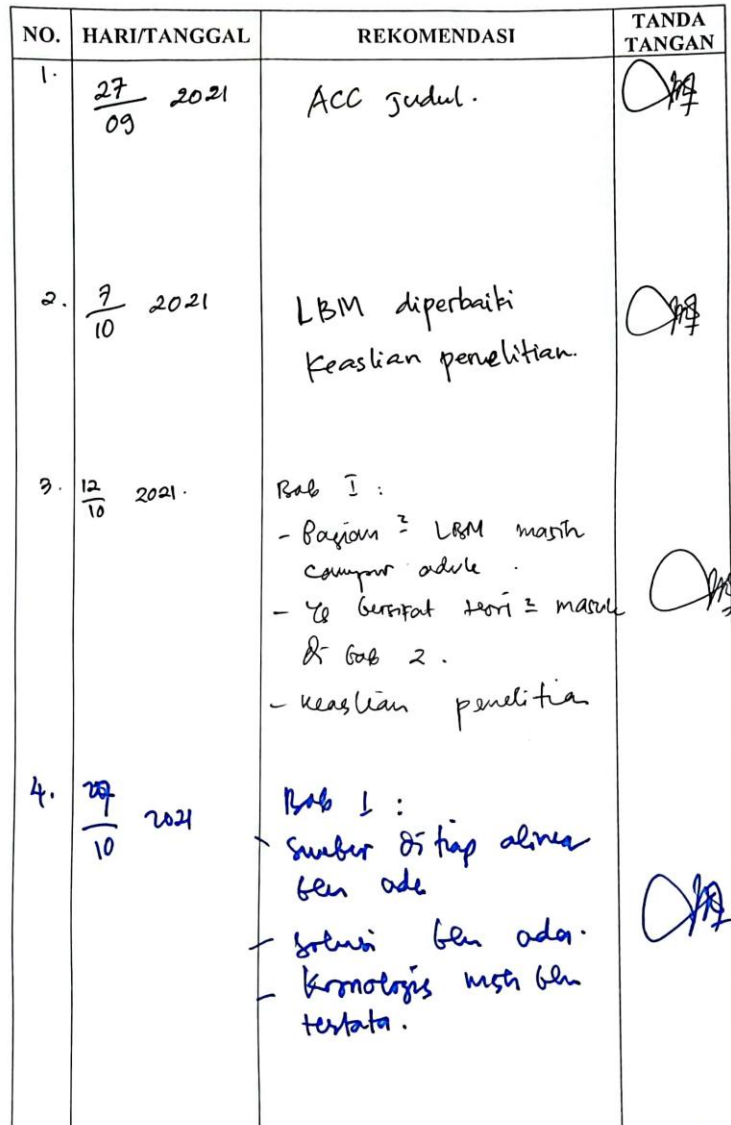 NO. HARI/TANGGAL REKOMENDASI TANDA TANGAN
1. 27/09 2021 ACC Judul.
2. 7/10 2021 LBM diperbaiki
Keaslian penelitian.
3. 12/10 2021. Bab I :
- Bagian² LBM masih
campur aduk.
- Yg bersifat teori² masuk
di bab 2.
- keaslian penelitian
4. 27/10 2021 Bab 1 :
- Sumber di tiap alinea
blm ada
- Solusi blm ada.
- Kronologis msh blm
tertata.